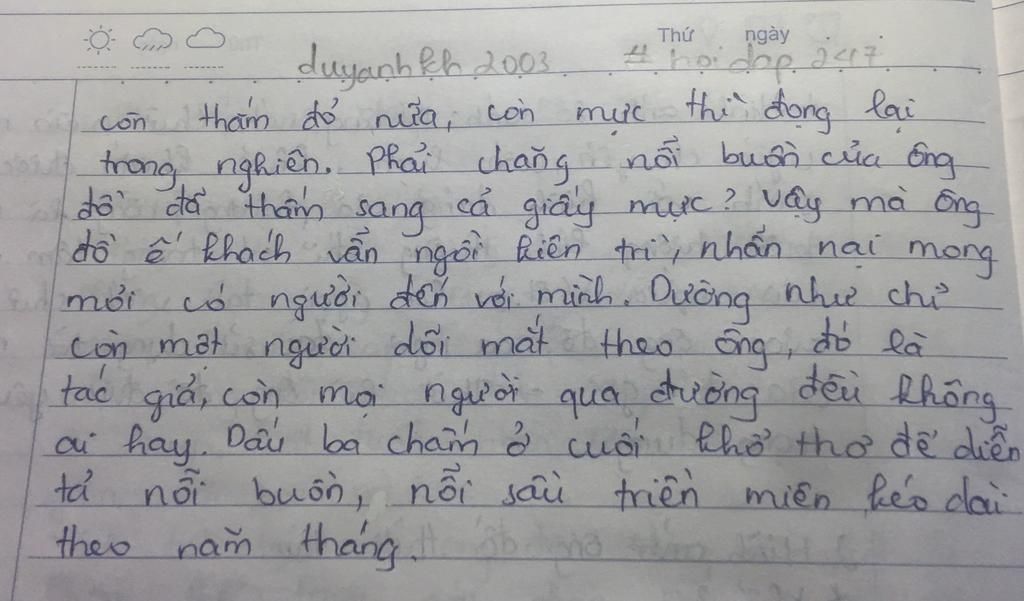 Thứ ngày
duyanhkh2003 # hoidap247
còn thắm đỏ nữa, còn mực thì đọng lại
trong nghiên. Phải chăng nỗi buồn của ông
đồ đã thấm sang cả giấy mực? Vậy mà ông
đồ ế khách vẫn ngồi kiên trì, nhẫn nại mong
mỏi có người đến với mình. Dường như chỉ
còn một người dõi mắt theo ông, đó là
tác giả, còn mọi người qua đường đều không
ai hay. Dấu ba chấm ở cuối khổ thơ để diễn
tả nỗi buồn, nỗi sầu triền miên kéo dài
theo năm tháng.